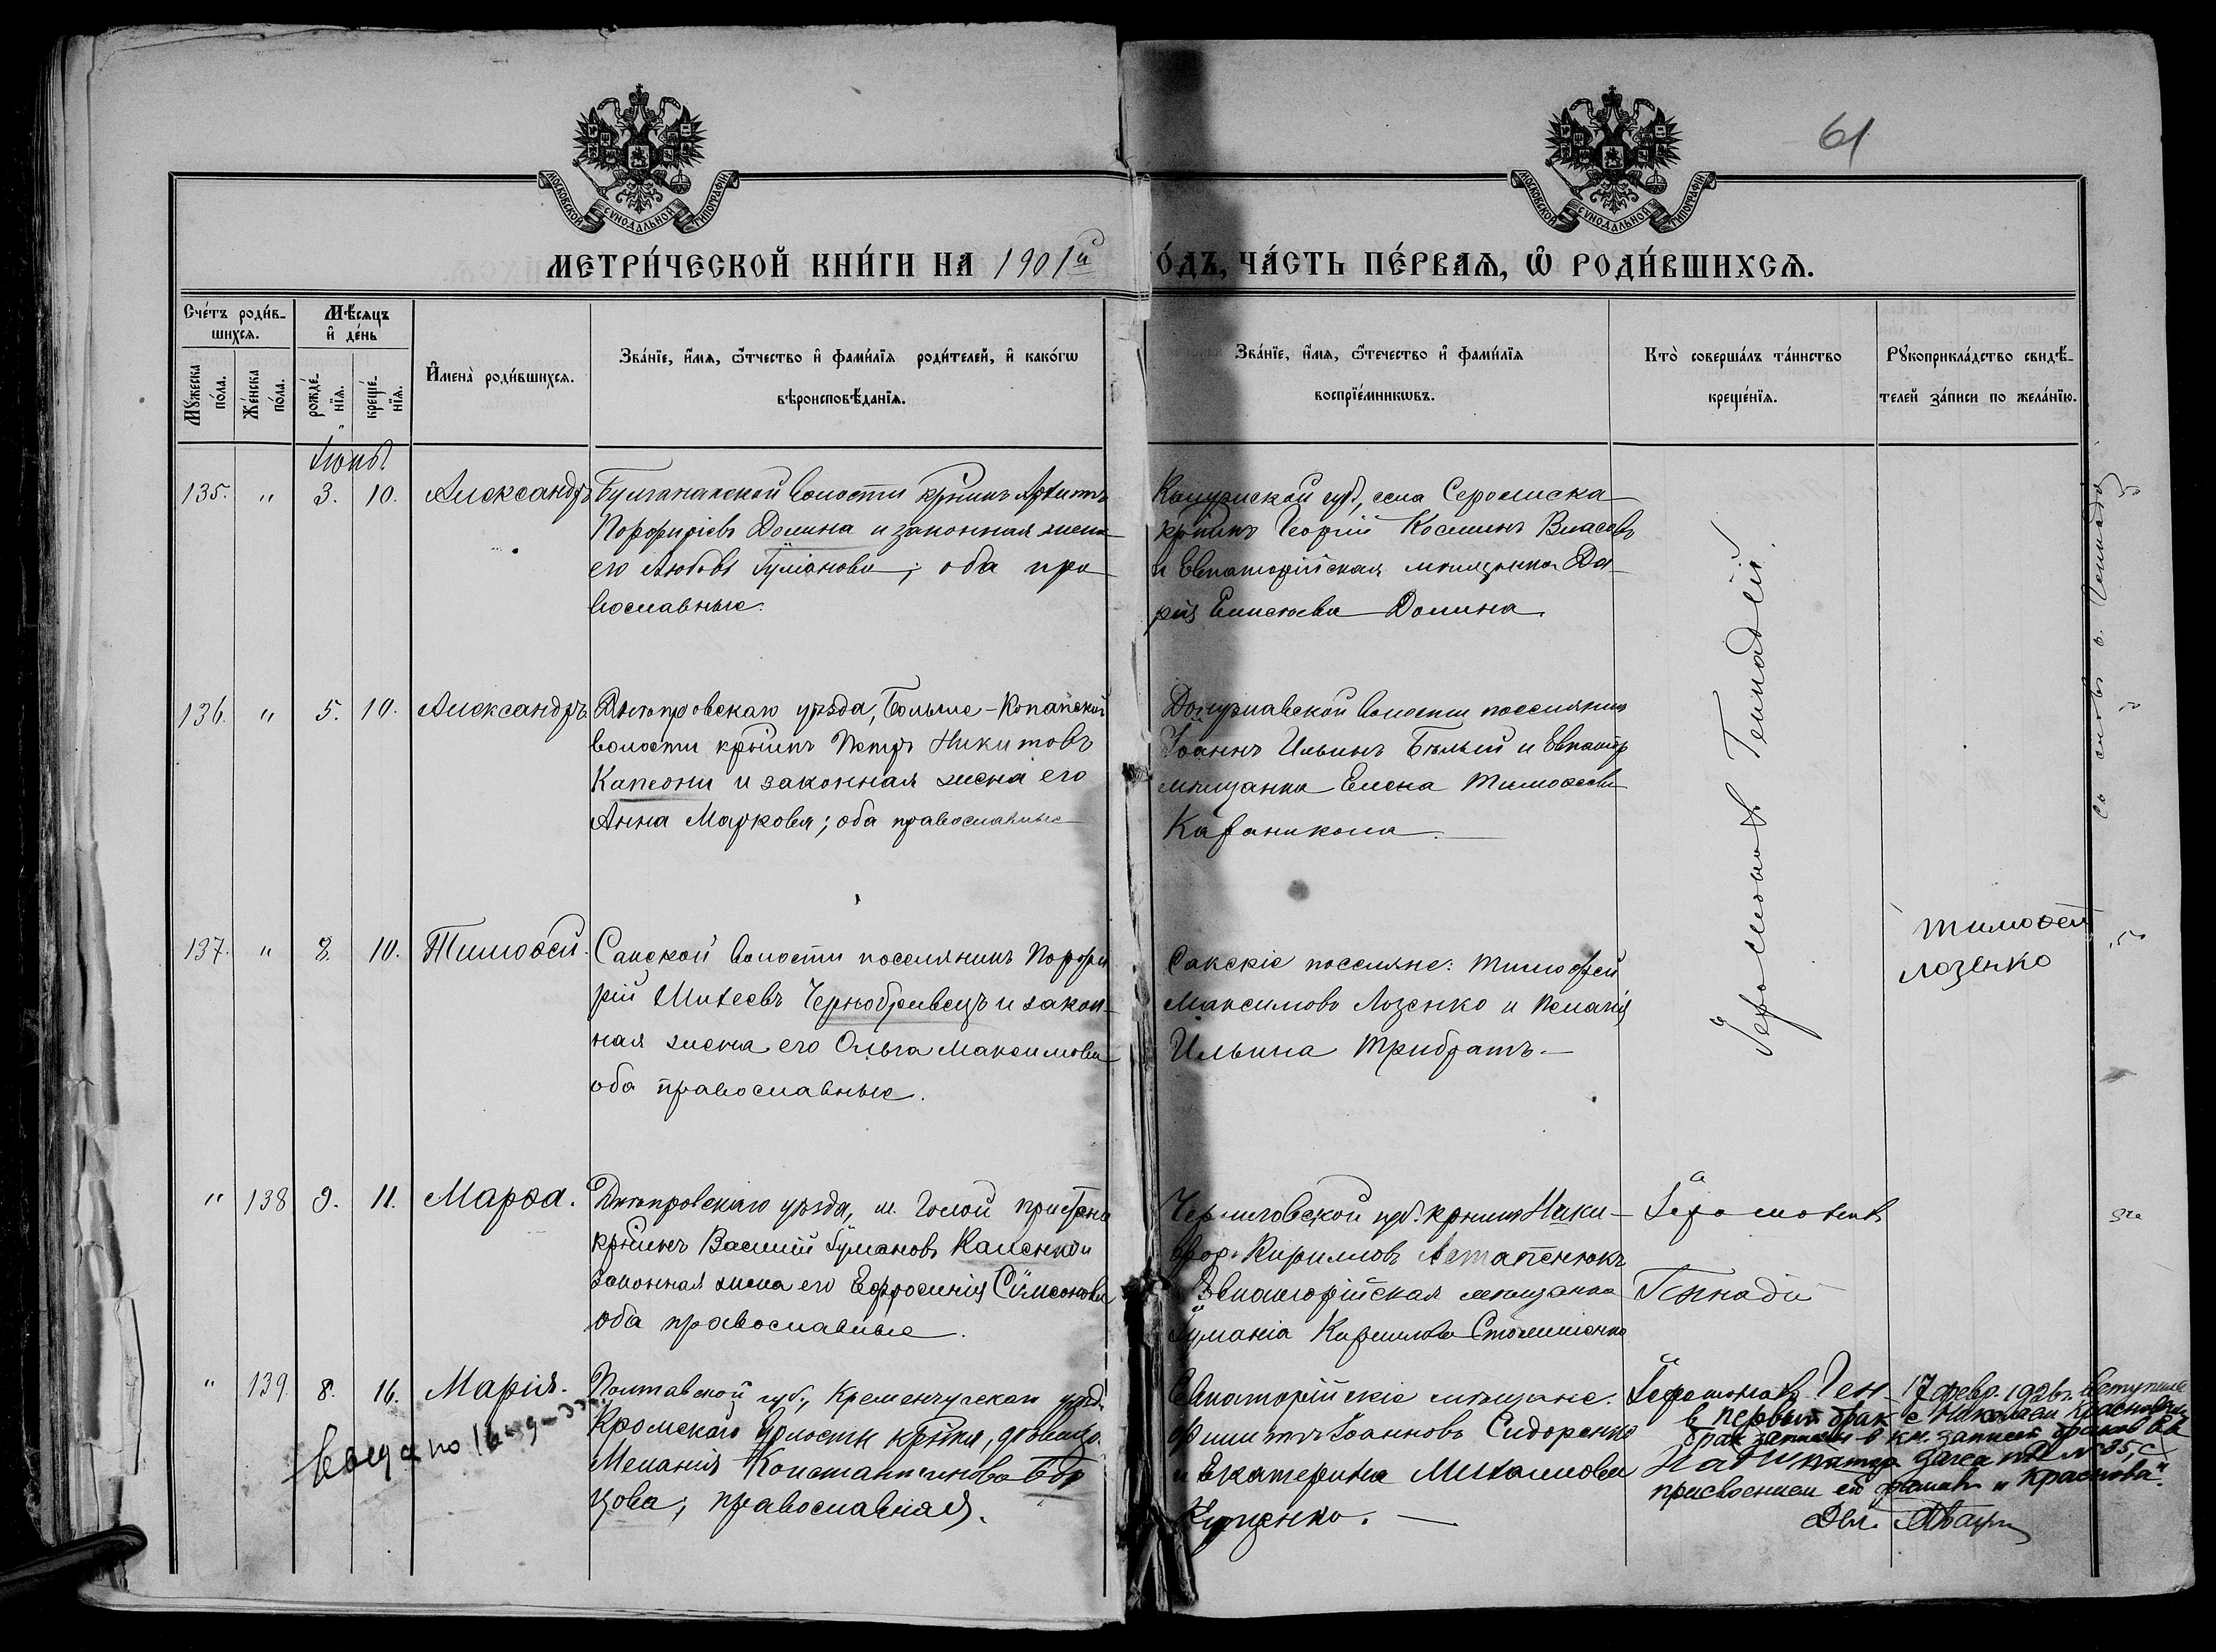 61
МОСКОВСКОЙ СѴНОДАЛЬНОЙ ТИПОГРАФІИ
МОСКОВСКОЙ СѴНОДАЛЬНОЙ ТИПОГРАФІИ
МЕТРИ́ЧЕСКОЙ КНИ́ГИ НА 1901й
О́ДЪ, ЧА́СТЬ ПЕ́РВАЯ, Ѡ РОДИ́ВШИХСЯ.
Сче́тъ роди́в-
шихся.
Мѣ́сяцъ
и де́нь
Му́жеска
по́ла.
Же́нска
по́ла.
рожде́-
нїя.
креще́-
нїя.
Имена̀ роди́вшихся.
Зва́нїе, и́мя, ѻ́тчество и фами́лїя роди́телей, и како́гѡ
вѣроисповѣ́данїя.
Зва́нїе, и́мя, ѻ́течество и фами́лїя
воспрїе́мникѡвъ.
Кто̀ соверша́лъ та́инство
креще́нїя.
Рꙋкоприкла́дство свидѣ́-
телей за́писи по жела́нїю.
Іюнь
135. " 3. 10. Александръ
Булганакской волости крѣинъ Архипъ
Порфиріевъ Долина и законная жена
его Любовь Іуліанова; оба пра
вославные.
Калужской губ., села
крѣинъ Георгій Косминъ Власовъ
и Евпаторійская мѣщанка Да-
рія Елисеева Долина.
136. " 5. 10. Александръ.
Днѣпровскаго уѣзда, Больше-Копанской
волости крѣинъ Петръ Никитовъ
и законная жена его
Анна Маркова; оба православные
Донузлавской волости поселянинъ
Іоаннъ Ильинъ Бѣлый и Евпатор
мѣщанка Елена Тимоѳеева
137. " 8. 10. Тимоѳей.
Сакской волости поселянинъ Порфи
рій Михеевъ Чернобривецъ и закон-
ная жена его Ольга Максимова
оба православные.
Сакскіе поселяне: Тимоѳей
Максимовъ Лозенко и Пелагія
Ильина Трибратъ.
Іеромонахъ Геннадій
Тимофей
Лозенко
" 138 9. 11. Марѳа.
Днѣпровскаго уѣзда, м. Голой пристани
крѣинъ Василій Іуліановъ
законная жена его Евфросинія Сѵмеонова
оба православные.
Черниговской губ. крѣинъ Ники-
форъ Кирилловъ Астапенюкъ
Евпаторійская мѣщанка
Іуліанія Кириллова
Іеромонахъ
Геннадій
" 139. 8. 16. Марія.
Полтавской губ., Кременчугскаго уѣзд.
волости крѣнка, дѣвица
Меланія Константинова
православная.
Евпаторійскіе мѣщане.
Филиппъ Іоанновъ Сидоренко
и Екатерина Михаилова
Куценко.
Іеромонахъ Ген
17 февр. 1926 г. вступила
в первый брак с Николаем
брак записан в кн. записей браков
загса под № 35, с
присвоением ей фамил. "Краснова".
Дел.